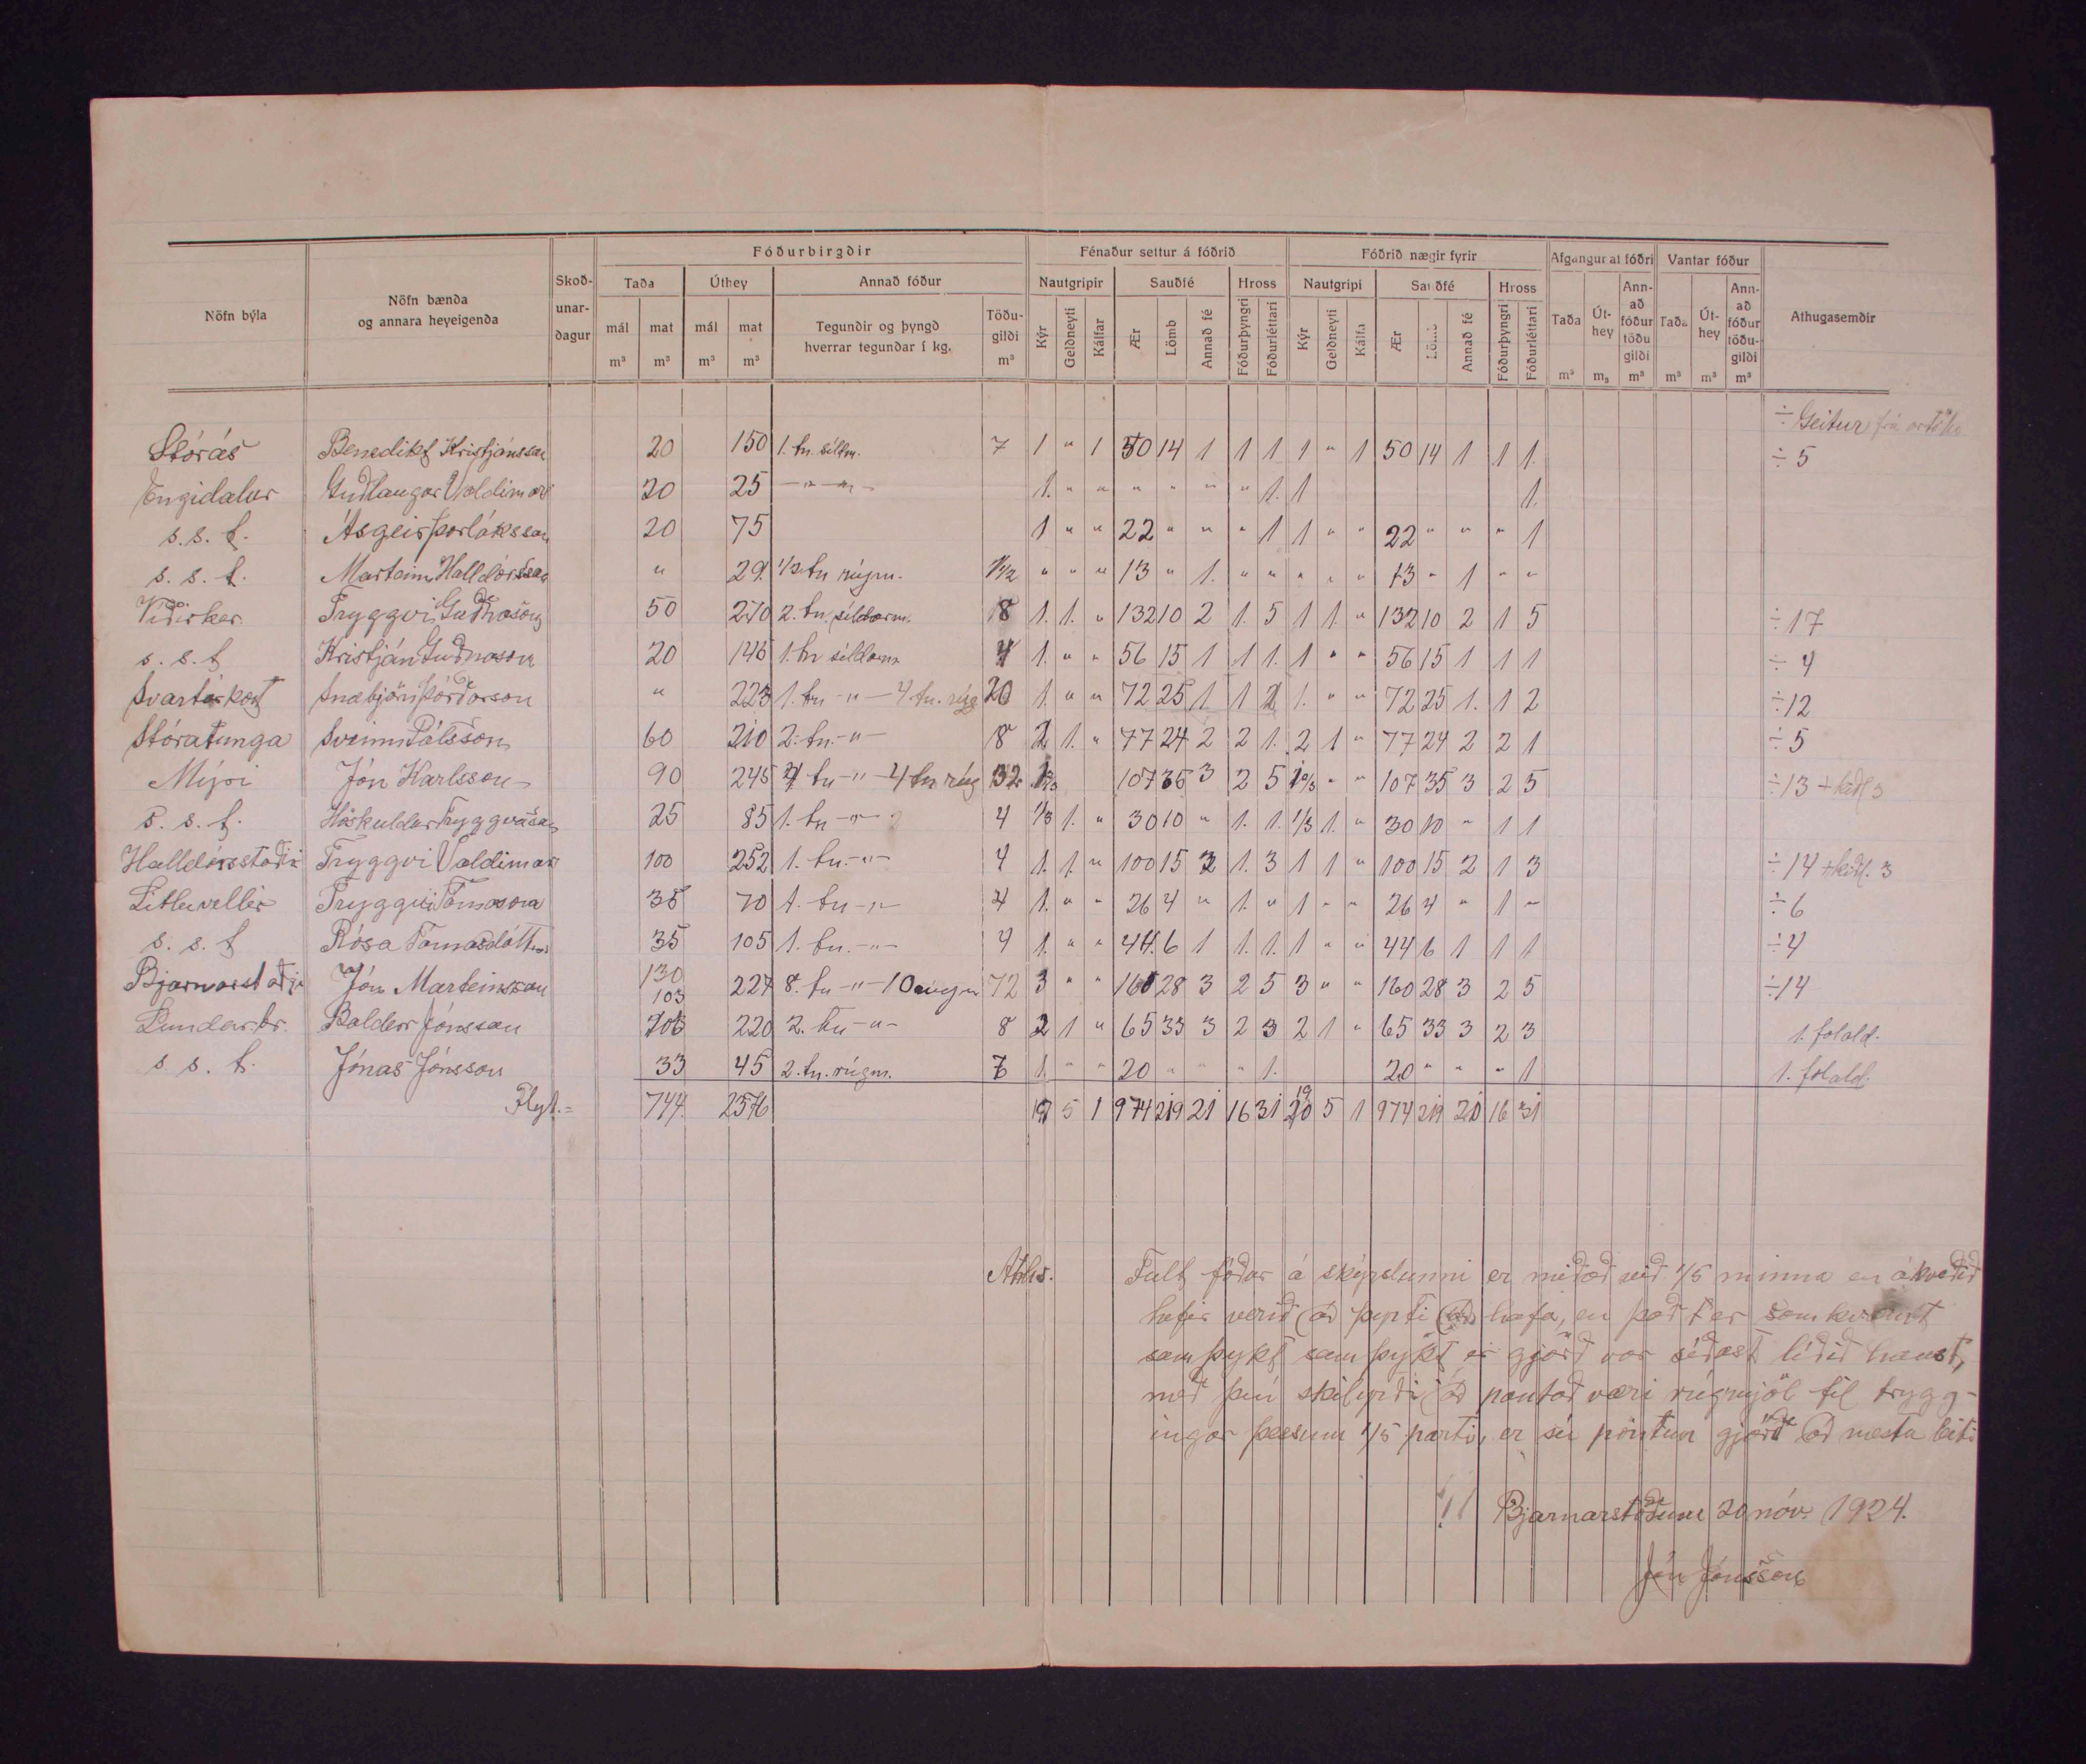 Fóðurbirgðir Fénaður settur á fóðrið Fóðrið nægir fyrir Afgangur af fóðri Vantar fóður
Nöfn býla Nöfn bænda og annara heyeigenda Skoð-unar-dagur Taða Úthey Annað fóður Nautgripir Sauðfé Hross Nautgripi Sauðfé Hross Taða Út-hey Ann-að fóður töðu gildi Taða Út-hey Ann-að fóður töðu-gildi Athugasemdir
mál mat mál mat Tegundir og þyngd hverrar tegundar í kg. Töðu-gildi Kýr Geldneyti Kálfar Ær Lömb Annað fé Fóðurþyngri Fóðurléttari Kýr Geldneyti Kálfa Ær Lömb Annað fé Fóðurþyngri Fóðurléttari
m³ m³ m³ m³ m³ m³ m₃ m³ m³ m³ m³
÷ Geitur
Stórás Benedikt Kristjánsson 20 150 1. tn. síldm. 7 1 " 1 50 14 1 1 1 1 " 1 50 14 1 1 1. ÷ 5
Engidalur Guðlaugur Valdimars 20 25 - " - " - 1. " " " " " " 1. 1 1.
s. s. t. Ásgeir Þorláksson 20 75 1 " " 22 " " " 1 1 " " 22 " " " 1
s. s. t. Marteinn Halldórsson " 29. 1/2 tn rúgm. " " " 13 " 1. " " " " " 13 " 1 " "
Víðirker. Tryggvi Guðnason 50 270 2. tn. síldarm. 8 1. 1. " 132 10 2 1. 5 1 1. " 132 10 2 1 5 ÷ 17
s. s. t Kristján Guðnason 20 146 1. tn síldarm 4 1. " " 56 15 1 1 1. 1 " " 56 15 1 1 1 ÷ 4
Svartárkot Snæbjörn Þórðarson " 223 1. tn - " - 4. tn. rúg 20 1. " " 72 25 1. 1 2 1. " " 72 25 1. 1 2 ÷ 12
Stóratunga Sveinn Pálsson 60 210 2. tn. - " - 8 2 1. " 77 24 2 2 1. 2 1 " 77 24 2 2 1 ÷ 5
Mýri Jón Karlsson 90 245 4 tn - " - 4 tn rúg 32 107 35 3 2 5 " " 107 35 3 2 5 ÷ 13
s. s. t. Höskuldur Tryggvason 25 85 1. tn - " - 4 1/3 1. " 30 10 " 1. 1. 1/3 1. " 30 10 " 1 1
Halldórsstaðir Tryggvi Valdimars 100 252 1. tn. - " - 4 1. 1. " 100 15 2 1. 3 1 1 " 100 15 2 1 3 ÷ 14 + kiðl. 3
Litluvellir Tryggvi Tómasson 35 70 1. tn - " - 4 1. " " 26 4 " 1. " 1 " " 26 4 " 1 " ÷ 6
s. s. t Rósa Tómasdóttir 35 105 1. tn. - " - 4 1. " " 44. 6 1 1. 1. 1 " " 44 6 1 1 1 ÷ 4
Bjarnarstaðir Jón Marteinsson 130 227 8. tn - " - 10 rúgm 72 3 " " 160 28 3 2 5 3 " " 160 28 3 2 5 ÷ 14
103
Lundarbr. Baldur Jónsson 106 220 2. tn - " - 8 2 1 " 65 33 3 2 3 2 1 " 65 33 3 2 3 1. folald.
s s. t. Jónas Jónsson 33 45 2. tn. rúgm. 7 1. " " 20 " " " 1. 20 " " " 1 1. folald.
Flyt. = 744. 2376 5 1 974 219 21 16 31 19 20 5 1 974 219 20 16 31
Aths. Fult fóður á skýrslunni er miðað við 1/5 minna en ákveðið
hefir verið að þyrfti að hafa, en það er samkvæmt
samþykt samþykt er gjörð var síðast liðið haust,
með því skilyrði að pantað væri rúgmjöl til trygg-
ingar þessum 1/5 parti, er sú pöntun gjörð að mestu leiti
Bjarnarstöðum 20 nóv. 1924.
Jón Jónsson